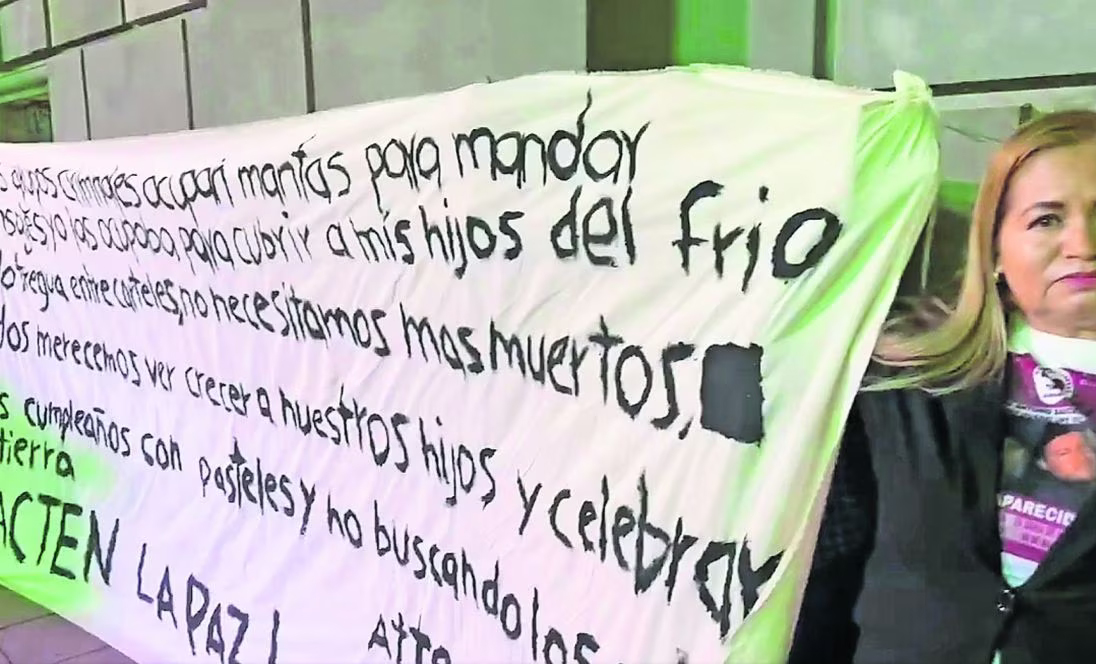 s grupos criminales ocupan mantas para mandar
nsajes yo las ocupaba para cubrir a mis hijos del frio
tregua entre carteles, no necesitamos mas muertos,
dos merecemos ver crecer a nuestros hijos y celebrar
s cumpleaños con pasteles y no buscandolos
tierra
ACTEN LA PAZ!
Atte
APARECID